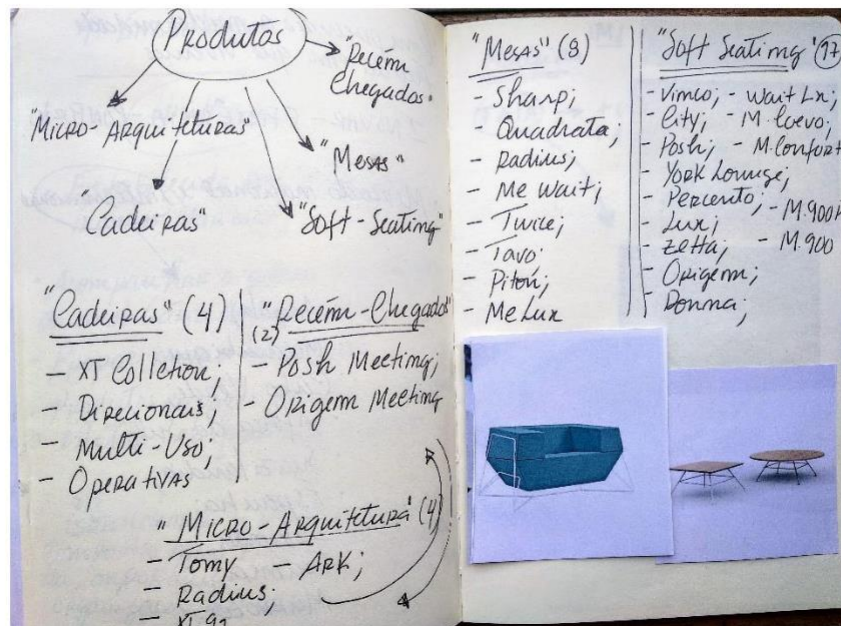 Produtos
Recém
Chegados"
"Micro-Arquiteturas"
"Mesas"
"Cadeiras"
"Soft-Seating"
"Cadeiras" (4)
- XT Colletion;
- Direcionais;
- Multi-Uso;
- Operativas
"Recém-Chegados"
(2)
- Posh Meeting;
- Origem Meeting
"Micro-Arquitetura" (4)
- Tomy - ARK;
- Radius;
"Mesas" (8)
- Sharp;
- Quadrata;
- Radius;
- Me Wait;
- Twice;
- Tavo
- Piton;
- Me Lux
"Soft Seating" (17)
- Vimco; - Wait Lx;
- City; - M. Cuevo;
- Posh; - M. Confort
- York Lounge;
- Percento;
- Lux; - M.900
- Zetta; - M.900
- Origem;
- Donna;